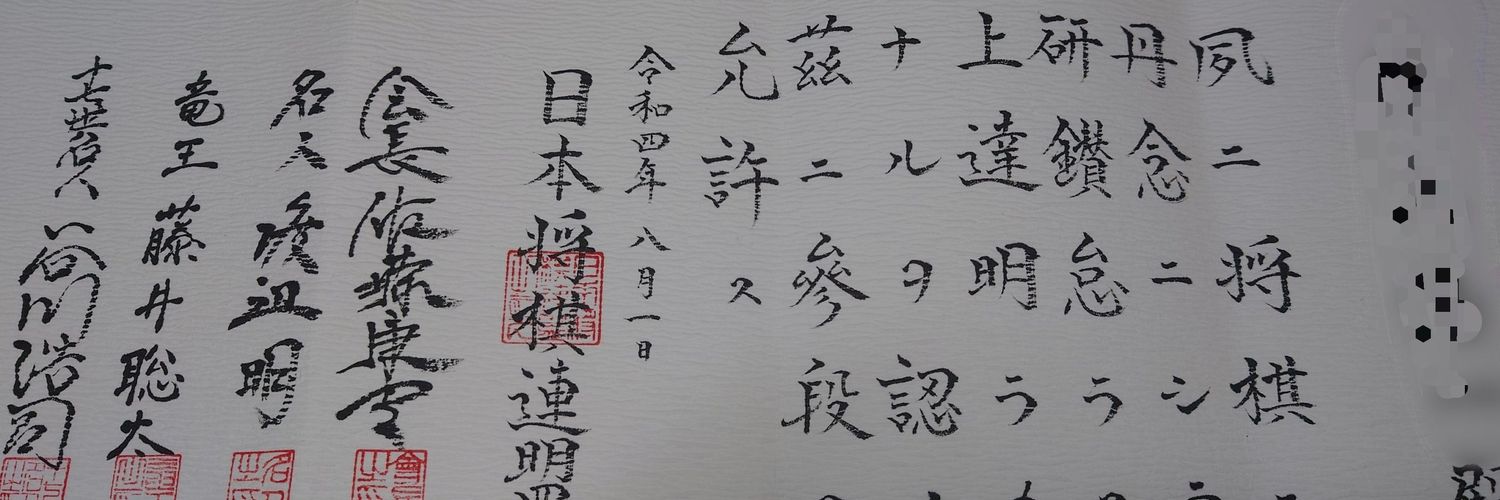 夙ニ将棋
丹念ニシ
研鑽怠ラ
上達明ラ
ナルヲ認
茲ニ參段
允許ス
令和四年八月一日
日本将棋連明
会長佐藤康光
名人渡辺明
竜王藤井聡太
十七世名人谷川浩司